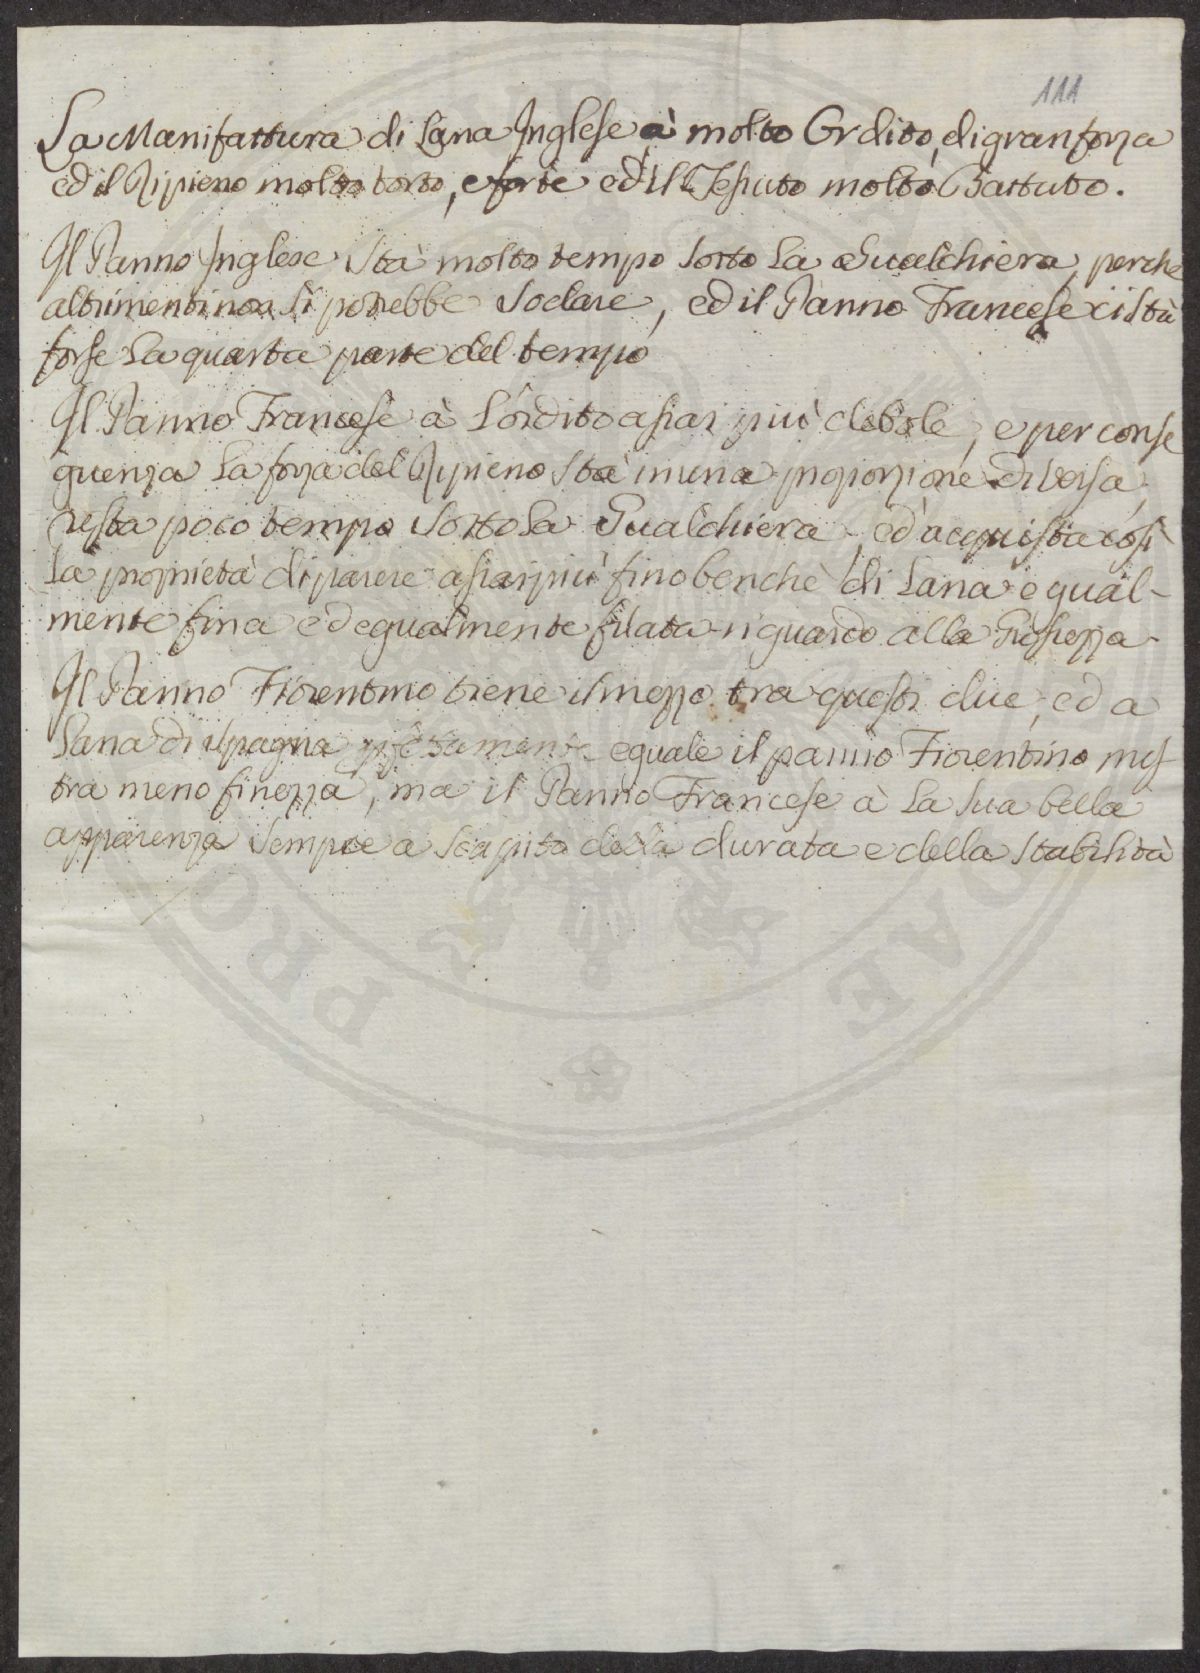 111
La Manifattura di Lana Inglese à molto Ordito, di gran forza
ed il Ripieno molto torto, e forte ed il Tessuto molto Battuto.
Il Panno Inglese stà molto tempo sotto La Gualchiera, perche
altrimenti non si potrebbe sodare, ed il Panno Francese ci stà
forse La quarta parte del tempo
Il Panno Francese à L'ordito assai più debole, e per conse
guenza La forza del Ripieno stà in una proporzione diversa,
resta poco tempo sotto La Gualchiera, ed acquista così
La proprietà di parere assai più fino benchè di Lana egual-
mente fina ed egualmente filata riguardo alla Grossezza.
Il Panno Fiorentino tiene il mezzo tra questi due, ed a
Lana di spagna eguale il panno Fiorentino mos
tra meno finezza, ma il Panno Francese à La sua bella
apparenza sempre a scapito della durata e della stabilità
PRO